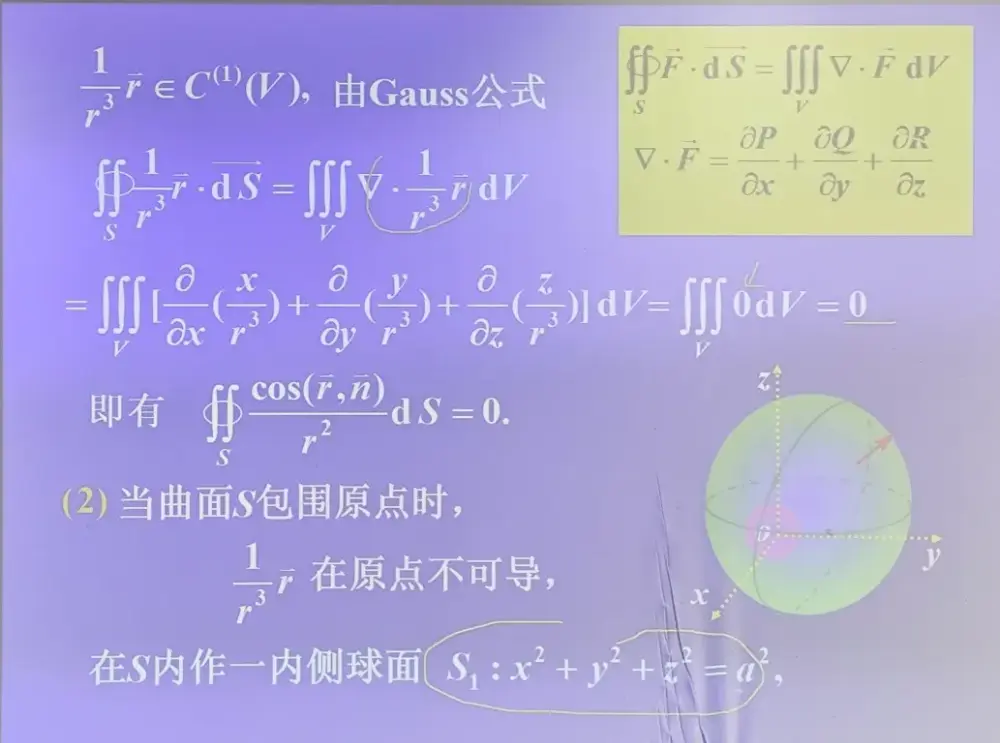 $\frac{1}{r^3}\vec{r} \in C^{(1)}(V)$, 由Gauss公式
$\oiint_S \frac{1}{r^3}\vec{r} \cdot \overrightarrow{dS} = \iiint_V \nabla \cdot \frac{1}{r^3}\vec{r}\, dV$
$= \iiint_V [\frac{\partial}{\partial x}(\frac{x}{r^3}) + \frac{\partial}{\partial y}(\frac{y}{r^3}) + \frac{\partial}{\partial z}(\frac{z}{r^3})] dV = \iiint_V 0 dV = 0$
即有 $\oiint_S \frac{\cos(\vec{r}, \vec{n})}{r^2} dS = 0.$
(2) 当曲面S包围原点时,
$\frac{1}{r^3}\vec{r}$ 在原点不可导,
在S内作一内侧球面 $S_1 : x^2 + y^2 + z^2 = a^2$,
$\oiint_S \vec{F} \cdot \overrightarrow{dS} = \iiint_V \nabla \cdot \vec{F}\, dV$
$\nabla \cdot \vec{F} = \frac{\partial P}{\partial x} + \frac{\partial Q}{\partial y} + \frac{\partial R}{\partial z}$
z
o
y
x